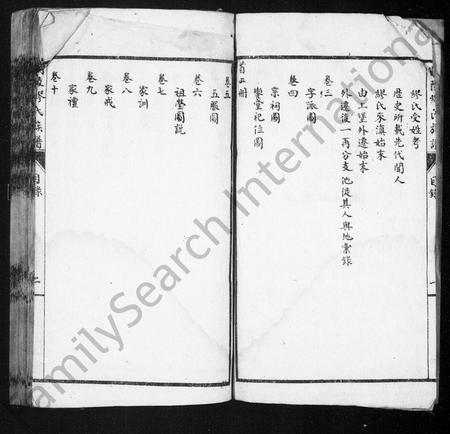 繆氏受姓考
歷史所載先代聞人
繆氏來滇始末
由土堡外遷始末
外遷後一再分支沱從其人與地彙錄
卷三
字派圖
卷四
宗祠圖
饗堂祀位圖
首二冊
卷五
五服圖
卷六
祖塋圖說
卷七
家訓
卷八
家戒
卷九
家禮
卷十
繆氏族譜
目錄
一
繆氏族譜
目錄
二
FamilySearch International